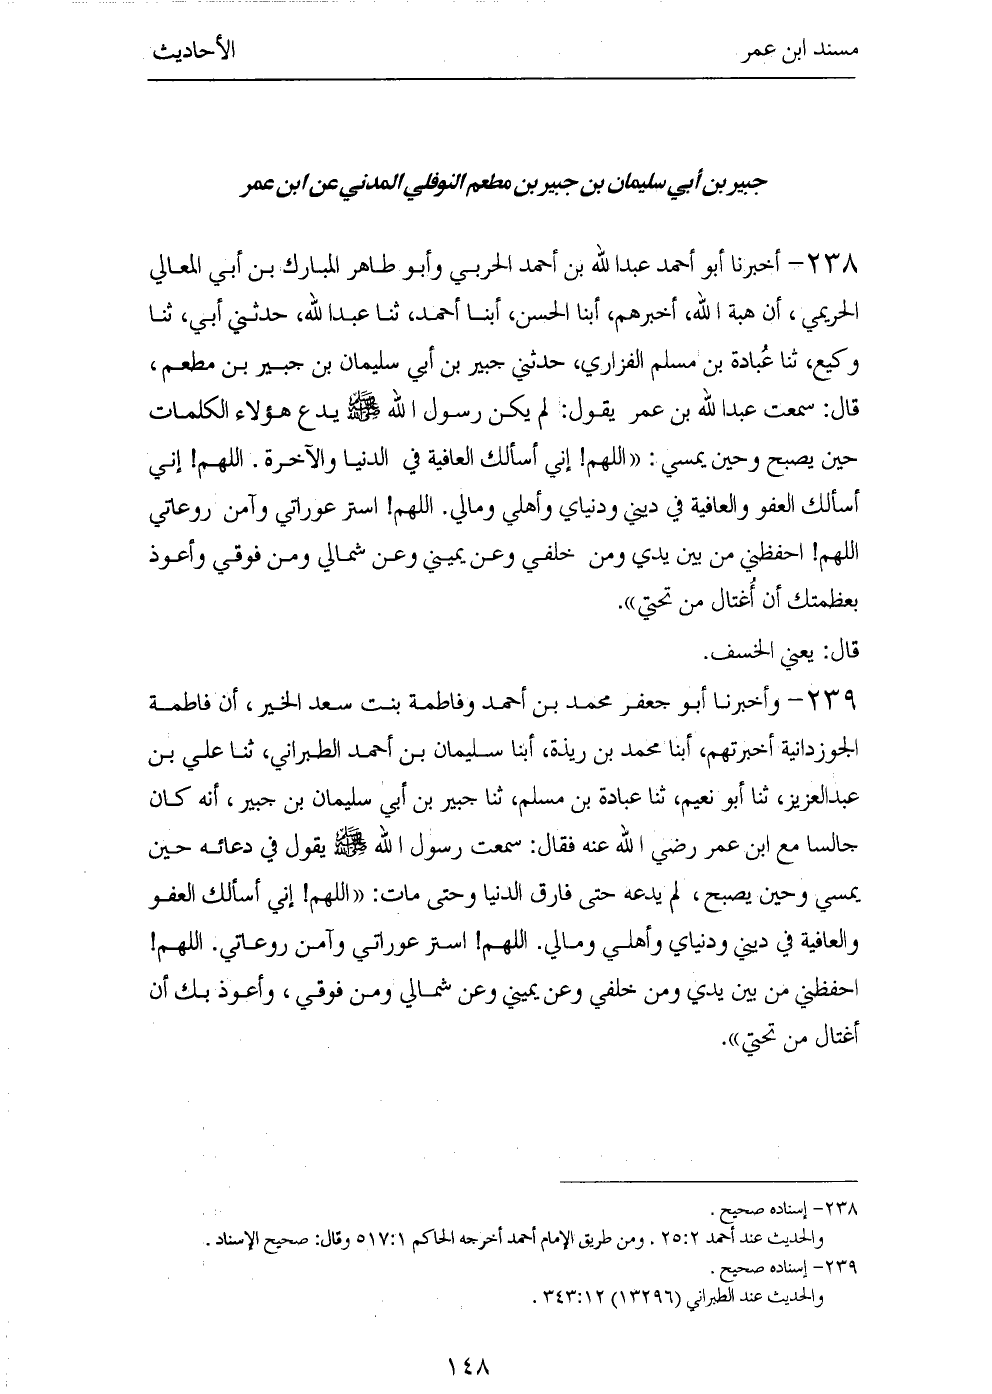 مسند ابن عمر
الأحاديث
جبير بن أبي سليمان بن جبير بن مطعم النوفلي المدني عن ابن عمر
٢٣٨- أخبرنا أبو أحمد عبدالله بن أحمد الحربي وأبو طاهر المبارك بن أبي المعالي
الحريمي، أن هبة الله، أخبرهم، أبنا الحسن، أبنا أحمد، ثنا عبدالله، حدثني أبي، ثنا
وكيع، ثنا عُبادة بن مسلم الفزاري، حدثني جبير بن أبي سليمان بن جبير بن مطعم،
قال: سمعت عبدالله بن عمر يقول: لم يكن رسول الله ﷺ يدع هؤلاء الكلمات
حين يصبح وحين يمسي: «اللهم! إني أسألك العافية في الدنيا والآخرة. اللهم! إني
أسألك العفو والعافية في ديني ودنياي وأهلي ومالي. اللهم! استر عوراتي وآمن روعاتي
اللهم! احفظني من بين يدي ومن خلفي وعن يميني وعن شمالي ومن فوقي وأعوذ
بعظمتك أن أُغتال من تحتي».
قال: يعني الخسف.
٢٣٩- وأخبرنا أبو جعفر محمد بن أحمد وفاطمة بنت سعد الخير، أن فاطمة
الجوزدانية أخبرتهم، أبنا محمد بن ريذة، أبنا سليمان بن أحمد الطبراني، ثنا علي بن
عبدالعزيز، ثنا أبو نعيم، ثنا عبادة بن مسلم، ثنا جبير بن أبي سليمان بن جبير، أنه كان
جالسا مع ابن عمر رضي الله عنه فقال: سمعت رسول الله ﷺ يقول في دعائه حين
يمسي وحين يصبح، لم يدعه حتى فارق الدنيا وحتى مات: «اللهم! إني أسألك العفو
والعافية في ديني ودنياي وأهلي ومالي. اللهم! استر عوراتي وآمن روعاتي. اللهم!
احفظني من بين يدي ومن خلفي وعن يميني وعن شمالي ومن فوقي، وأعوذ بك أن
أغتال من تحتي».
٢٣٨- إسناده صحيح.
والحديث عند أحمد ٢٥:٢. ومن طريق الإمام أحمد أخرجه الحاكم ٥١٧:١ وقال: صحيح الإسناد.
٢٣٩- إسناده صحيح.
والحديث عند الطبراني (١٣٢٩٦) ٣٤٣:١٢.
١٤٨